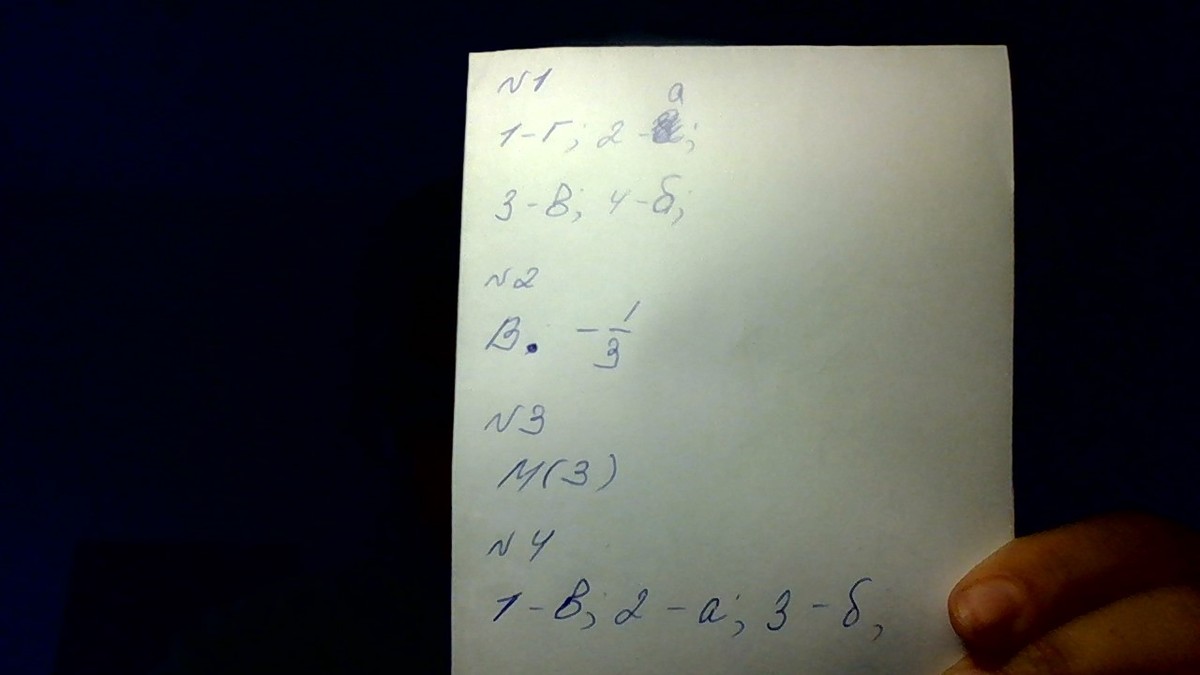 N1
а
1-г; 2-;
3-в; 4-б;
N2
В. -1/3
N3
М(3)
N4
1-в; 2-а; 3-б,